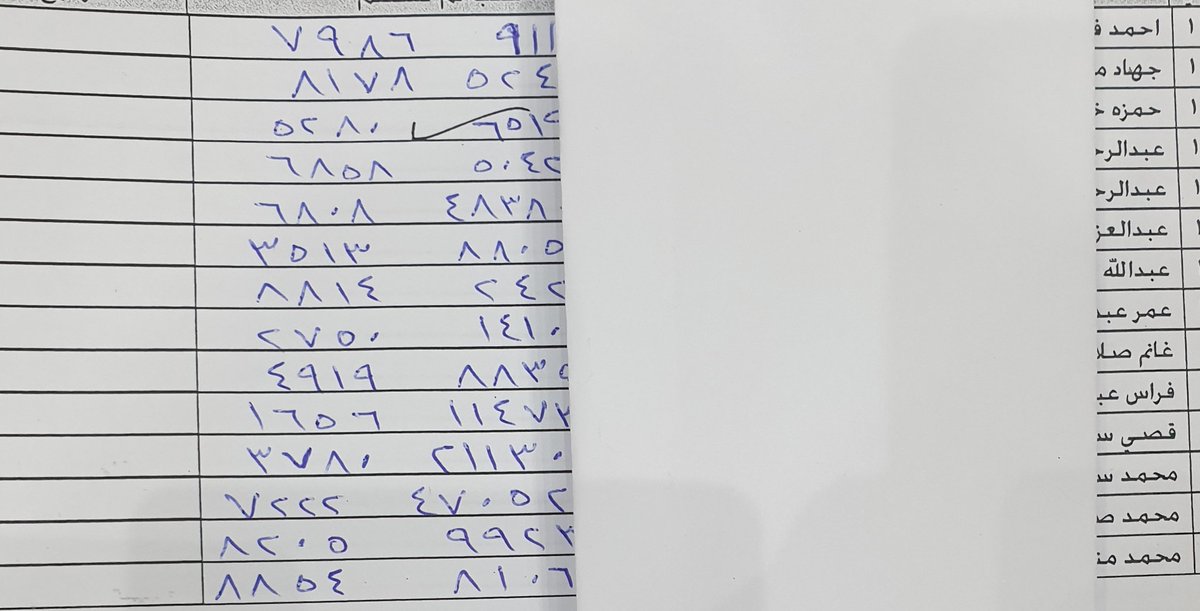 ١ احمد ف ٩١١ ٧٩٨٦
١ جهاد م ٥٢٤ ٨١٧٨
١ حمزه خ ٦٥١ ٥٢٨٠
١ عبدالرح ٥٠٤٢ ٦٨٥٨
١ عبدالرح ٤٨٣٨ ٦٨٠٨
عبدالعز ٨٨٠٥ ٣٥١٣
عبدالله ٢٤٢ ٨٨١٤
عمر عبد ١٤١٠ ٢٧٥٠
غانم صلا ٨٨٣ ٤٩١٩
فراس عب ١١٤٧ ١٦٥٦
قصي س ٢١١٣٠ ٣٧٨٠
محمد س ٤٧٠٥٢ ٧٢٢٢
محمد ص ٩٩٢ ٨٢٠٥
محمد من ٨١٠٦ ٨٨٥٤